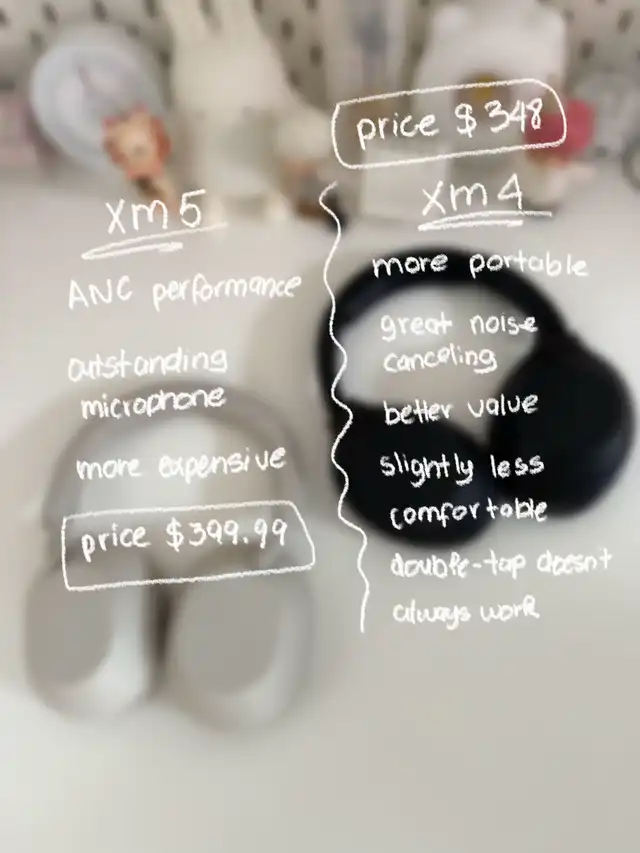 xm5
ANC performance
outstanding
microphone
more expensive
price $399.99
price $348
xm4
more portable
great noise
canceling
better value
slightly less
comfortable
double-tap doesn't
always work